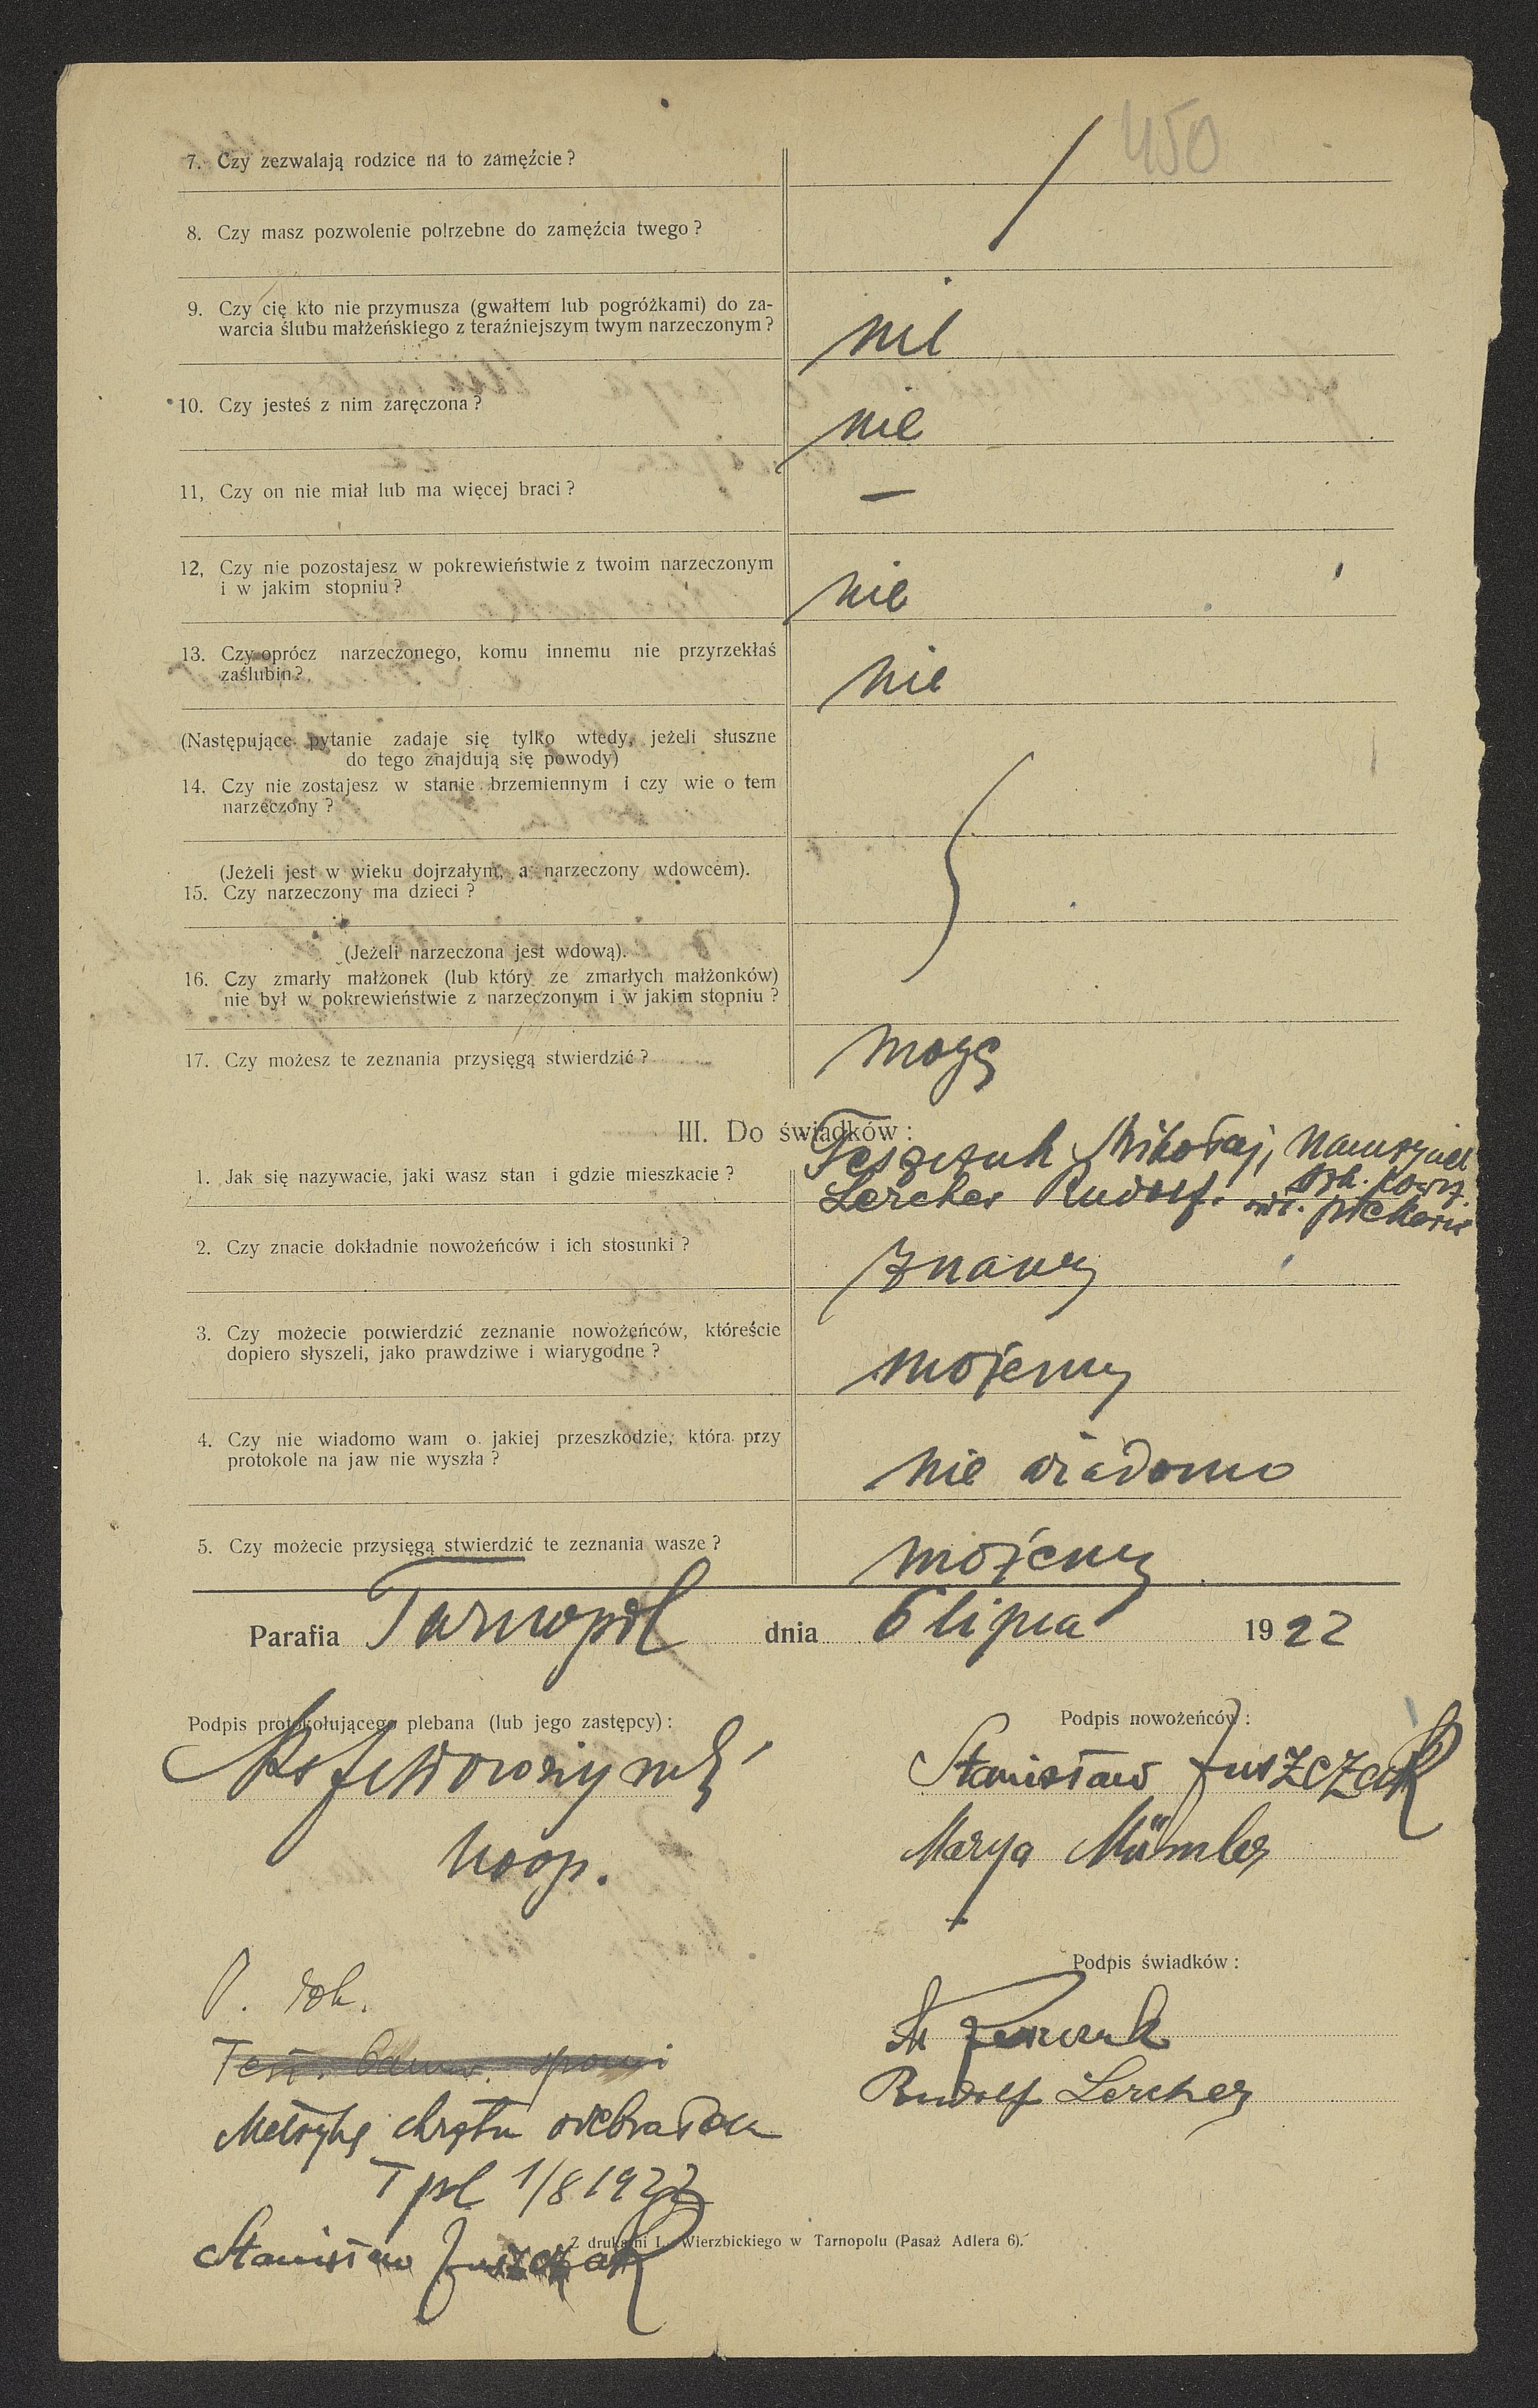 450
7. Czy zezwalają rodzice na to zamęźcie?
8. Czy masz pozwolenie potrzebne do zamęźcia twego?
9. Czy cię kto nie przymusza (gwałtem lub pogróżkami) do za-
warcia ślubu małżeńskiego z teraźniejszym twym narzeczonym?
nie
10. Czy jesteś z nim zaręczona?
nie
11, Czy on nie miał lub ma więcej braci?
—
12, Czy nie pozostajesz w pokrewieństwie z twoim narzeczonym
i w jakim stopniu?
nie
13. Czy oprócz narzeczonego, komu innemu nie przyrzekłaś
zaślubin?
nie
(Następujące pytanie zadaje się tylko wtedy, jeżeli słuszne
do tego znajdują się powody)
14. Czy nie zostajesz w stanie brzemiennym i czy wie o tem
narzeczony?
(Jeżeli jest w wieku dojrzałym, a narzeczony wdowcem).
15. Czy narzeczony ma dzieci?
(Jeżeli narzeczona jest wdową).
16. Czy zmarły małżonek (lub który ze zmarłych małżonków)
nie był w pokrewieństwie z narzeczonym i w jakim stopniu?
17. Czy możesz te zeznania przysięgą stwierdzić?
mogę
III. Do świadków:
1. Jak się nazywacie, jaki wasz stan i gdzie mieszkacie?
Feszczuk Mikołaj, nauczyciel
szk. powsz.
Lercher Rudolf. wł. piekarni
2. Czy znacie dokładnie nowożeńców i ich stosunki?
znamy
3. Czy możecie potwierdzić zeznanie nowożeńców, któreście
dopiero słyszeli, jako prawdziwe i wiarygodne?
możemy
4. Czy nie wiadomo wam o jakiej przeszkodzie, która przy
protokole na jaw nie wyszła?
nie wiadomo
5. Czy możecie przysięgą stwierdzić te zeznania wasze?
możemy
Parafia Tarnopol dnia 6 lipca 1922
Podpis protokołującego plebana (lub jego zastępcy):
koop.
Podpis nowożeńców:
Stanisław Juszczak
Marya Mümler
Podpis świadków:
Rudolf Lercher
Metrykę chrztu odebrałem
Tpol 1/8 1922
Stanisław Juszczak
Z drukarni L. Wierzbickiego w Tarnopolu (Pasaż Adlera 6).